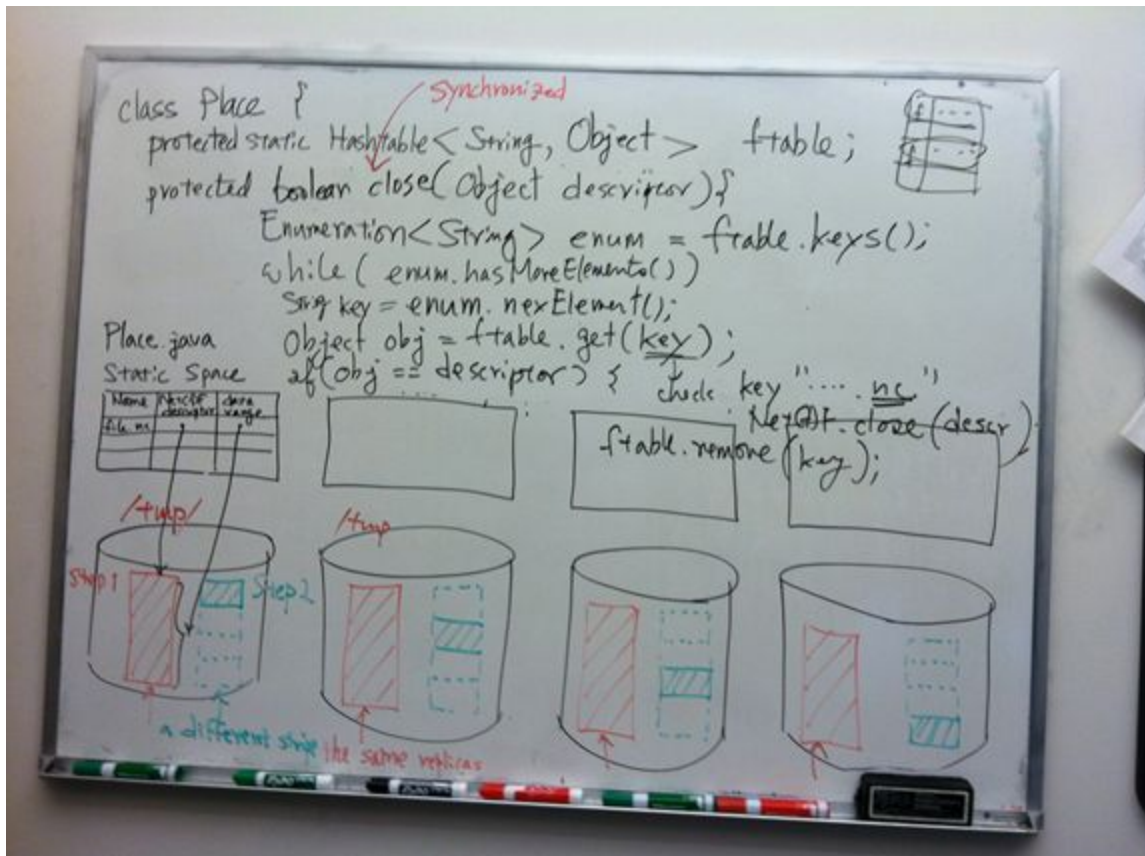 class Place {
synchronized
protected static Hashtable<String, Object> ftable;
protected boolean close(Object descriptor){
Enumeration<String> enum = ftable.keys();
while( enum.hasMoreElements())
String key = enum.nexElement();
Object obj = ftable.get(key);
if(obj == descriptor) {
check key ".... nc"
close(descr)
ftable.remove(key);
Place.java
Static Space
Name NetCDF descriptor data range
file.nc
/tmp/
/tmp
Step1
Step2
a different stripe
the same replicas